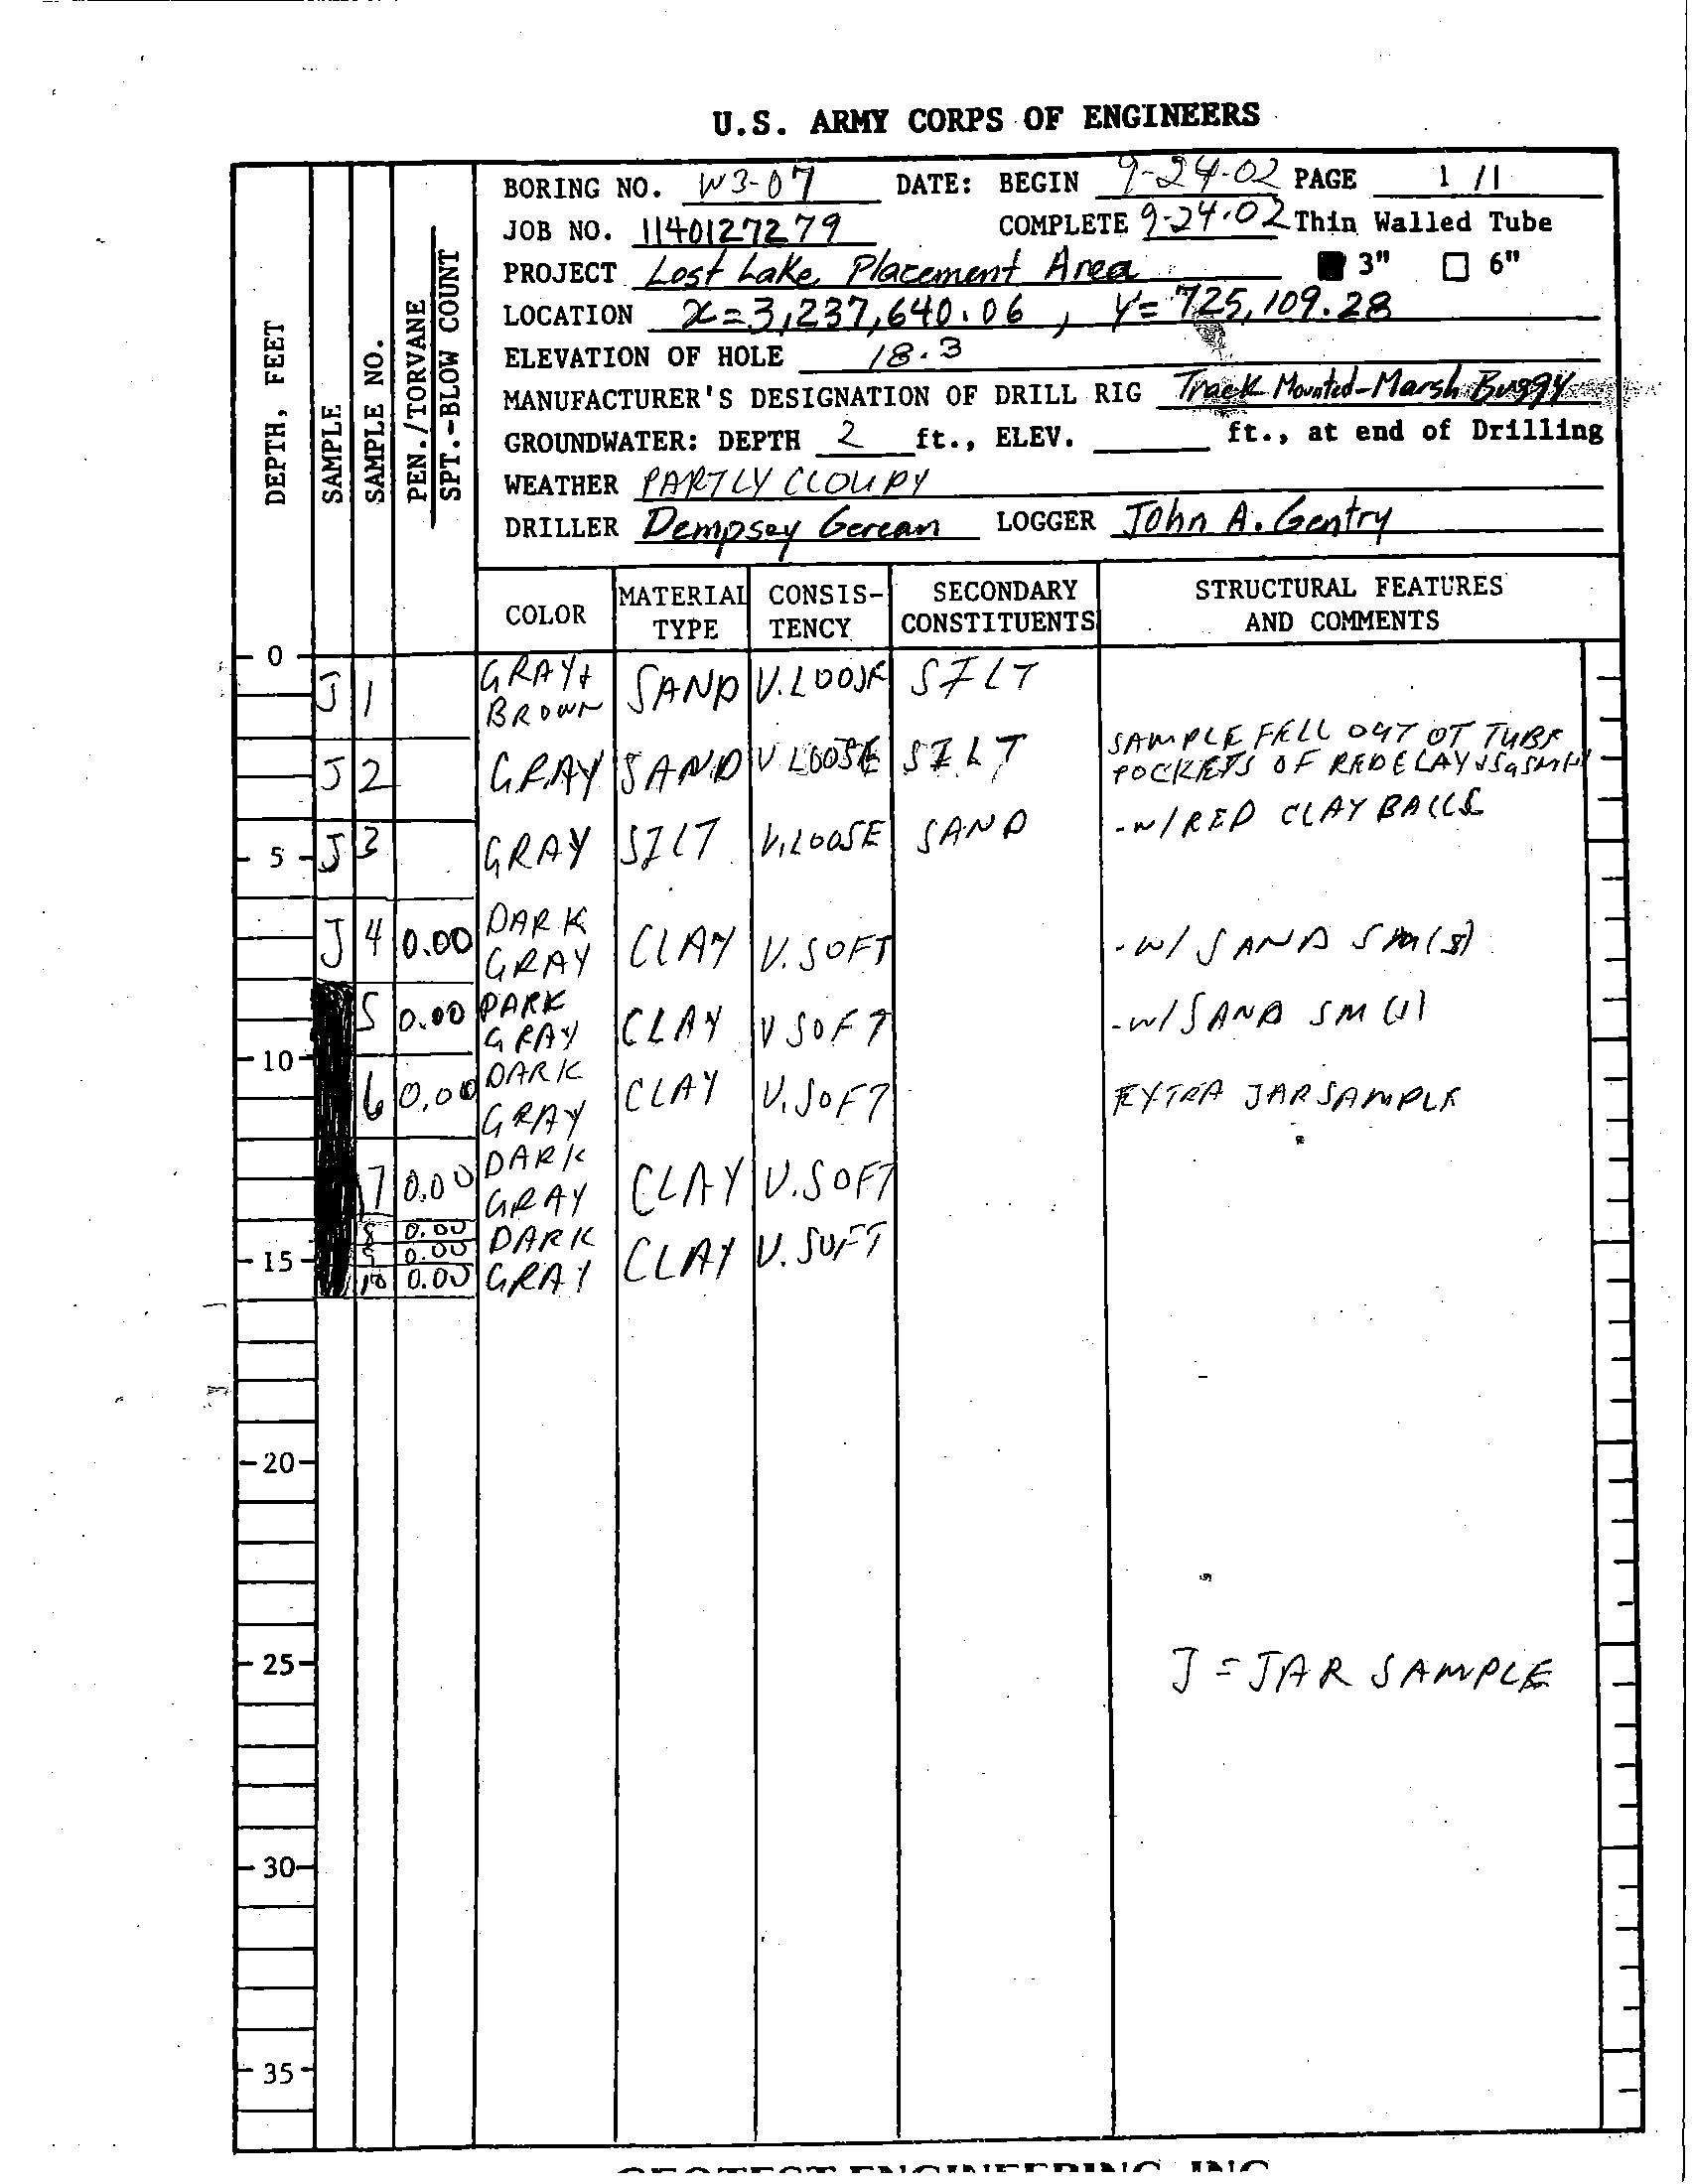 U.S. ARMY CORPS OF ENGINEERS
BORING NO. W3-07 DATE: BEGIN 9-24-02 PAGE 1 /1
JOB NO. 1140127279 COMPLETE 9-24-02 Thin Walled Tube
PROJECT Lost Lake Placement Area 3" 6"
LOCATION x=3,237,640.06, Y=725,109.28
ELEVATION OF HOLE 18.3
MANUFACTURER'S DESIGNATION OF DRILL RIG Track Mounted-Marsh Buggy
GROUNDWATER: DEPTH 2 ft., ELEV. ft., at end of Drilling
WEATHER PARTLY CLOUDY
DRILLER Dempsey Gerean LOGGER John A. Gentry
DEPTH, FEET
SAMPLE
SAMPLE NO.
PEN./TORVANE
SPT.-BLOW COUNT
COLOR MATERIAL TYPE CONSIS-TENCY SECONDARY CONSTITUENTS STRUCTURAL FEATURES AND COMMENTS
0
J 1 GRAY+ BROWN SAND V.LOOSE SILT
J 2 GRAY SAND V LOOSE SILT SAMPLE FELL OUT OT TUBE
POCKETS OF RED CLAY
5 J 3 GRAY SILT V.LOOSE SAND -W/RED CLAY BALLS
J 4 0.00 DARK GRAY CLAY V.SOFT -W/ SAND SM(S)
5 0.00 DARK GRAY CLAY V SOFT -W/SAND SM
10
6 0.00 DARK GRAY CLAY V.SOFT EXTRA JAR SAMPLE
7 0.00 DARK GRAY CLAY V.SOFT
8 0.00 DARK
15 9 0.00 CLAY V.SOFT
10 0.00 GRAY
20
25 J = JAR SAMPLE
30
35
GEOTEST ENGINEERING, INC.